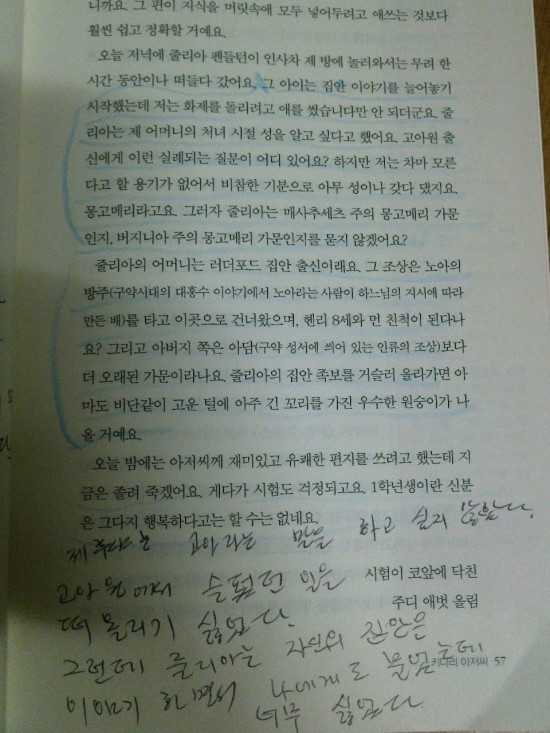 니까요. 그 편이 지식을 머릿속에 모두 넣어두려고 애쓰는 것보다
훨씬 쉽고 정확할 거예요.
오늘 저녁에 줄리아 펜들턴이 인사차 제 방에 놀러와서는 무려 한
시간 동안이나 떠들다 갔어요. 그 아이는 집안 이야기를 늘어놓기
시작했는데 저는 화제를 돌리려고 애를 썼습니다만 안 되더군요. 줄
리아는 제 어머니의 처녀 시절 성을 알고 싶다고 했어요. 고아원 출
신에게 이런 실례되는 질문이 어디 있어요? 하지만 저는 차마 모른
다고 할 용기가 없어서 비참한 기분으로 아무 성이나 갖다 댔지요.
몽고메리라고요. 그러자 줄리아는 매사추세츠 주의 몽고메리 가문
인지, 버지니아 주의 몽고메리 가문인지를 묻지 않겠어요?
줄리아의 어머니는 러더포드 집안 출신이래요. 그 조상은 노아의
방주(구약시대의 대홍수 이야기에서 노아라는 사람이 하느님의 지시에 따라
만든 배)를 타고 이곳으로 건너왔으며, 헨리 8세와 먼 친척이 된다나
요? 그리고 아버지 쪽은 아담(구약 성서에 씌어 있는 인류의 조상)보다
더 오래된 가문이라나요. 줄리아의 집안 족보를 거슬러 올라가면 아
마도 비단같이 고운 털에 아주 긴 꼬리를 가진 우수한 원숭이가 나
올 거예요.
오늘 밤에는 아저씨께 재미있고 유쾌한 편지를 쓰려고 했는데 지
금은 졸려 죽겠어요. 게다가 시험도 걱정되고요. 1학년생이란 신분
은 그다지 행복하다고는 할 수는 없네요.
고아라는 말을 하고 싶지 않았다.
고아원에서 슬펐던 일을
시험이 코앞에 닥친
떠올리기 싫었다.
주디 애벗 올림
그런데 줄리아는 자신의 집안을
이야기 하면서 나에게도 물었는데
키다리 아저씨 57
너무 싫었다.